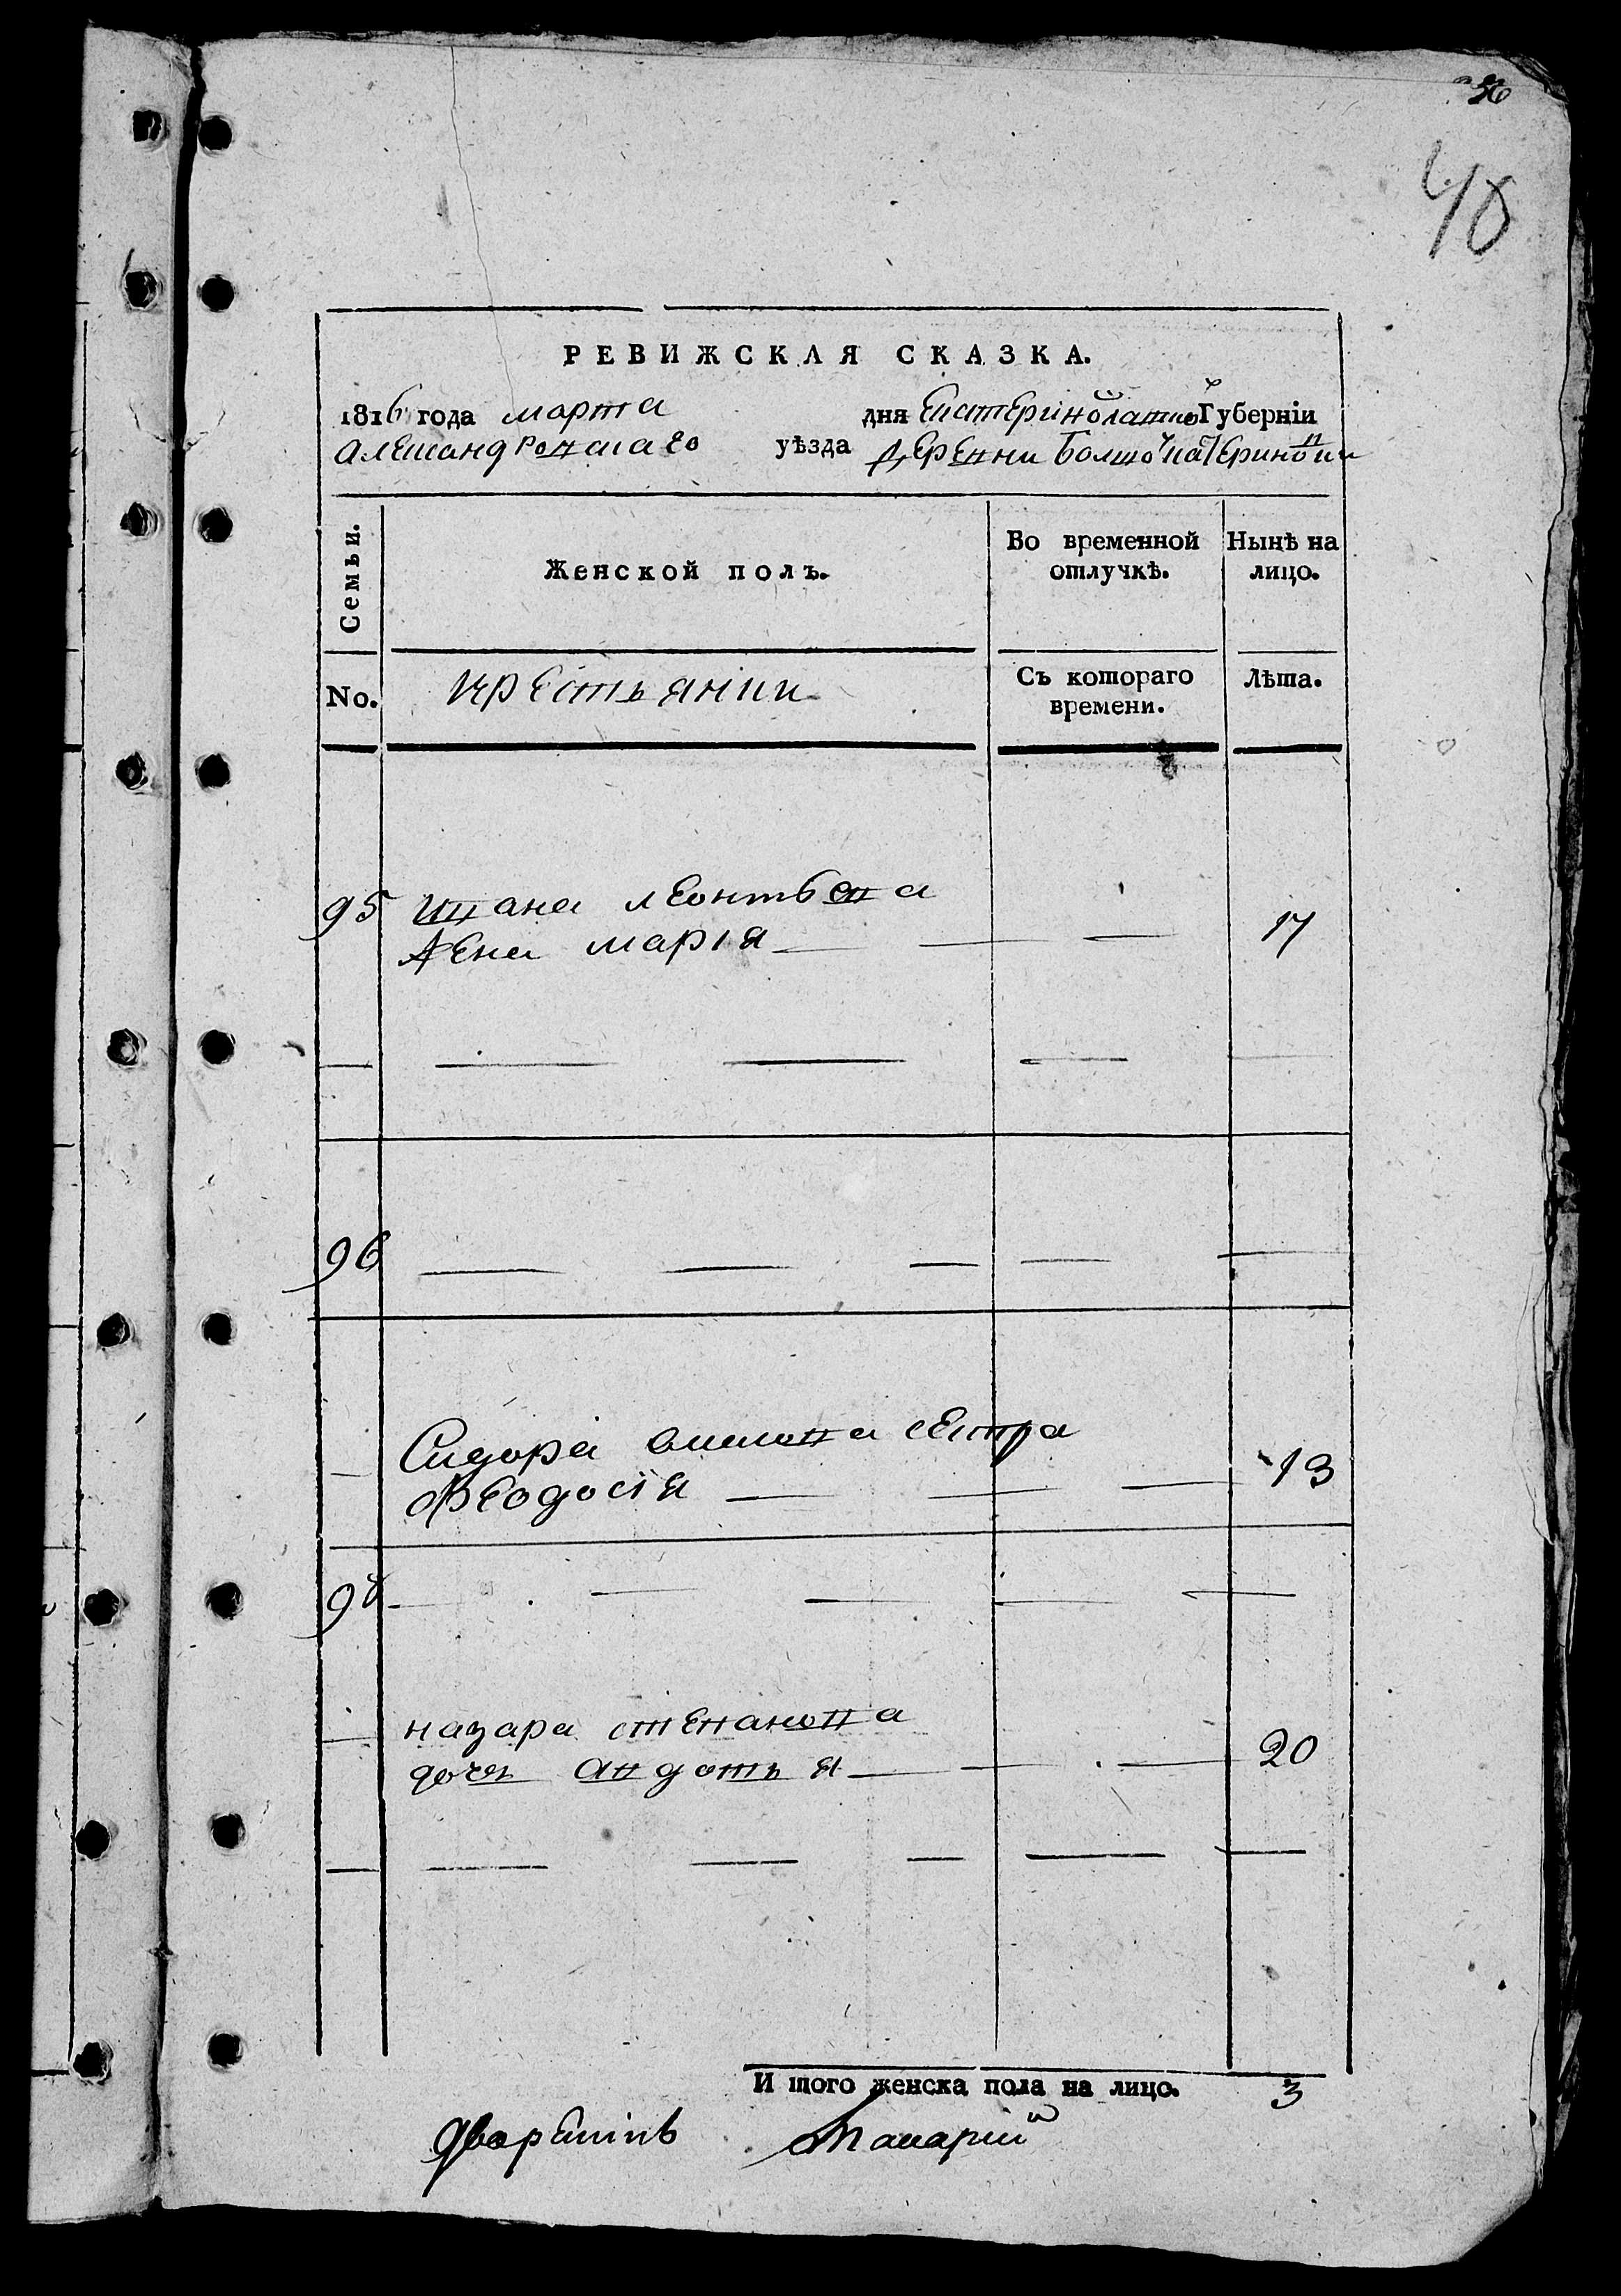 36
40
РЕВИЖСКАЯ СКАЗКА.
1816 года марта дня Екатеринославской Губерніи
александровскаго уѣзда деревни Болшой катериновки
Семьи. Женской полъ. Во временной отлучкѣ. Нынѣ на лицо.
No. крестьянки Съ котораго времени. Лѣта.
95 ивана леонтьева
жена марія 17
96
Сидора сестра
Феодосія 13
98
назара степанова
дочь авдотья 20
И того женска пола на лицо. 3
Макарій